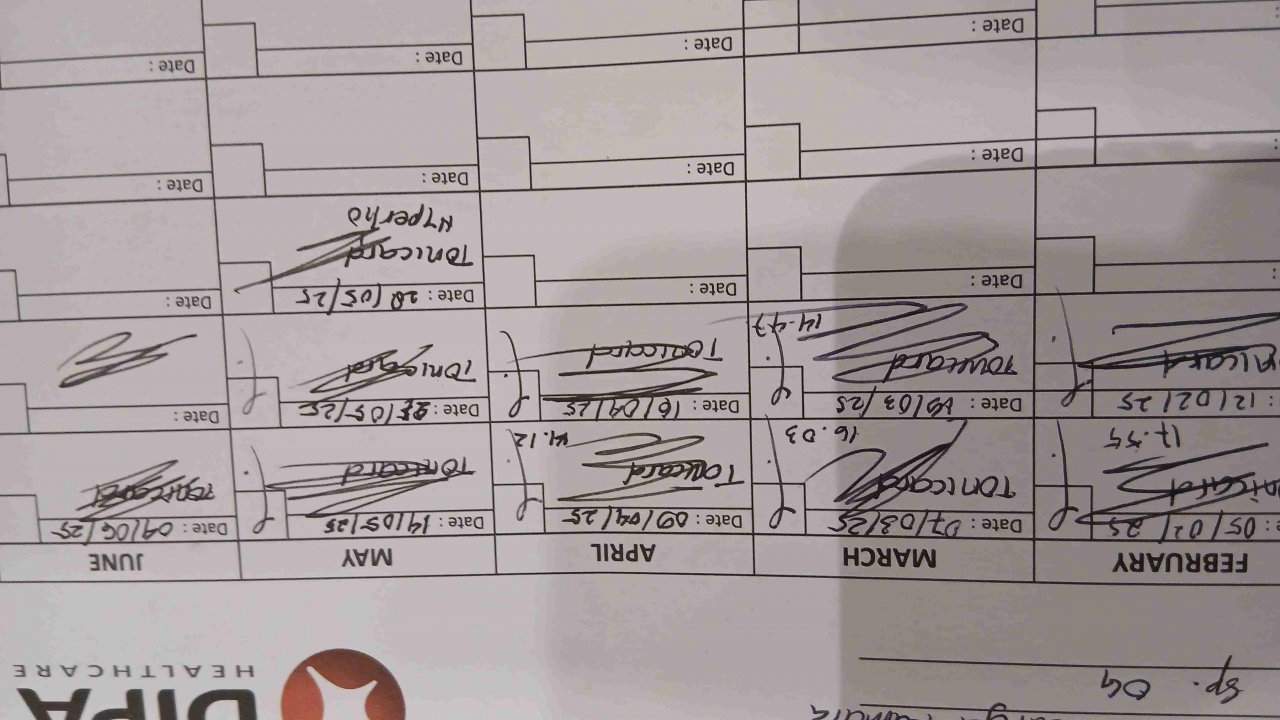 DIPA
HEALTHCARE
Sp. OG
FEBRUARY MARCH APRIL MAY JUNE
: 05/02/25 Date : 07/03/25 Date : 09/04/25 Date : 14/05/25 Date : 04/06/25
nicard Tonicard Tonicard Tonicard Tonicard
17.55 16.03 14.12
: 12/02/25 Date : 19/03/25 Date : 16/04/25 Date : /05/25 Date :
nicard Tonicard Tonicard Tonicard
14.47
: Date : Date : Date : 28/05/25 Date :
Tonicard
: Date : Date : Date : Date :
: Date : Date : Date : Date :